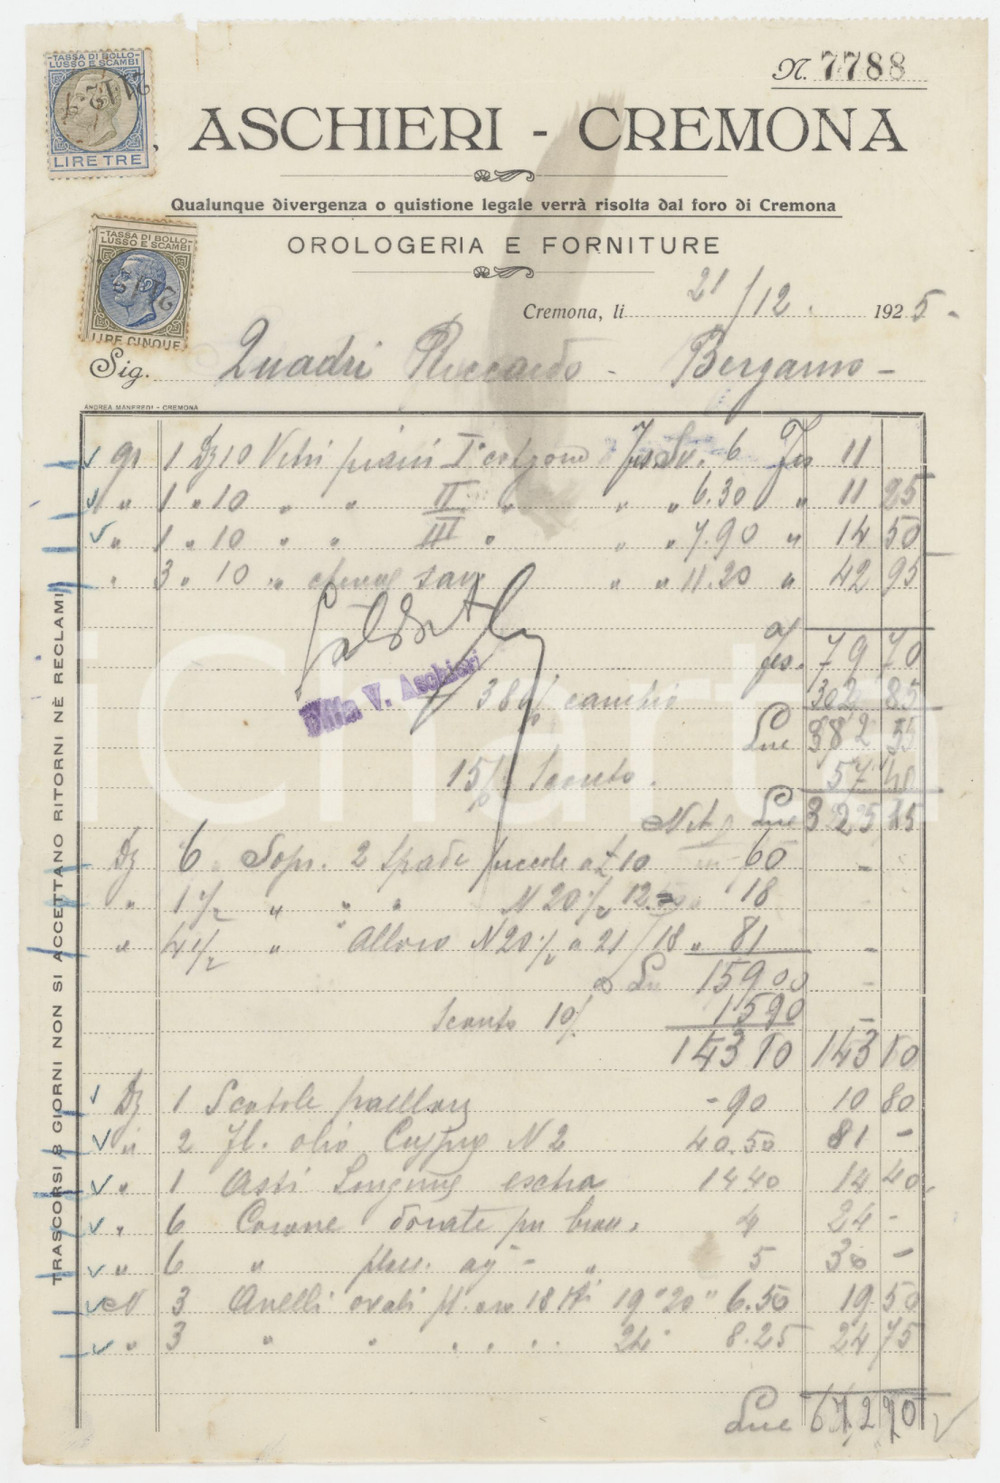 TASSA DI BOLLO
LUSSO E SCAMBI
LIRE TRE
N. 7788
ASCHIERI - CREMONA
Qualunque divergenza o quistione legale verrà risolta dal foro di Cremona
OROLOGERIA E FORNITURE
TASSA DI BOLLO
LUSSO E SCAMBI
LIRE CINQUE
Cremona, li 21/12. 1925.-
Sig. Quadri Riccardo - Bergamo -
ANDREA MANFREDI - CREMONA
gr 1 Dz 10 Vetri piani I 6 frs 11
" 1 " 10 " " II " " " 6.30 " 11 25
" 1 " 10 " " III " " " 7.90 " 14 50
" 3 " 10 " " " 11.20 " 42 95
frs. 79 70
Ditta V. Aschieri
380% cambio 302 85
Lire 382 55
15% Sconto. 57 40
Netto Lire 325 15
Dz 6 Sopr. 2 10 60 -
" 1 1/2 " " " N 20% 12 18
" 4 1/2 " " Alloro N 20% a 21/18 " 81 -
L 159 00 -
Sconto 10% 15 90 -
143 10 143 10
Dz 1 Scatole -90 10 80
" 2 fl. olio N 2 40.50 81 -
" 1 Asti 14 40 14 40
" 6 Corone dorate per 4 24 -
" 6 " plac. " 5 30 -
N 3 Anelli ovali pl. oro 18 Kti 19 "20" 6.50 19 50
" 3 " " " " " 24 8.25 24 75
Lire 67,2 70
TRASCORSI 8 GIORNI NON SI ACCETTANO RITORNI NÈ RECLAMI
iCharta